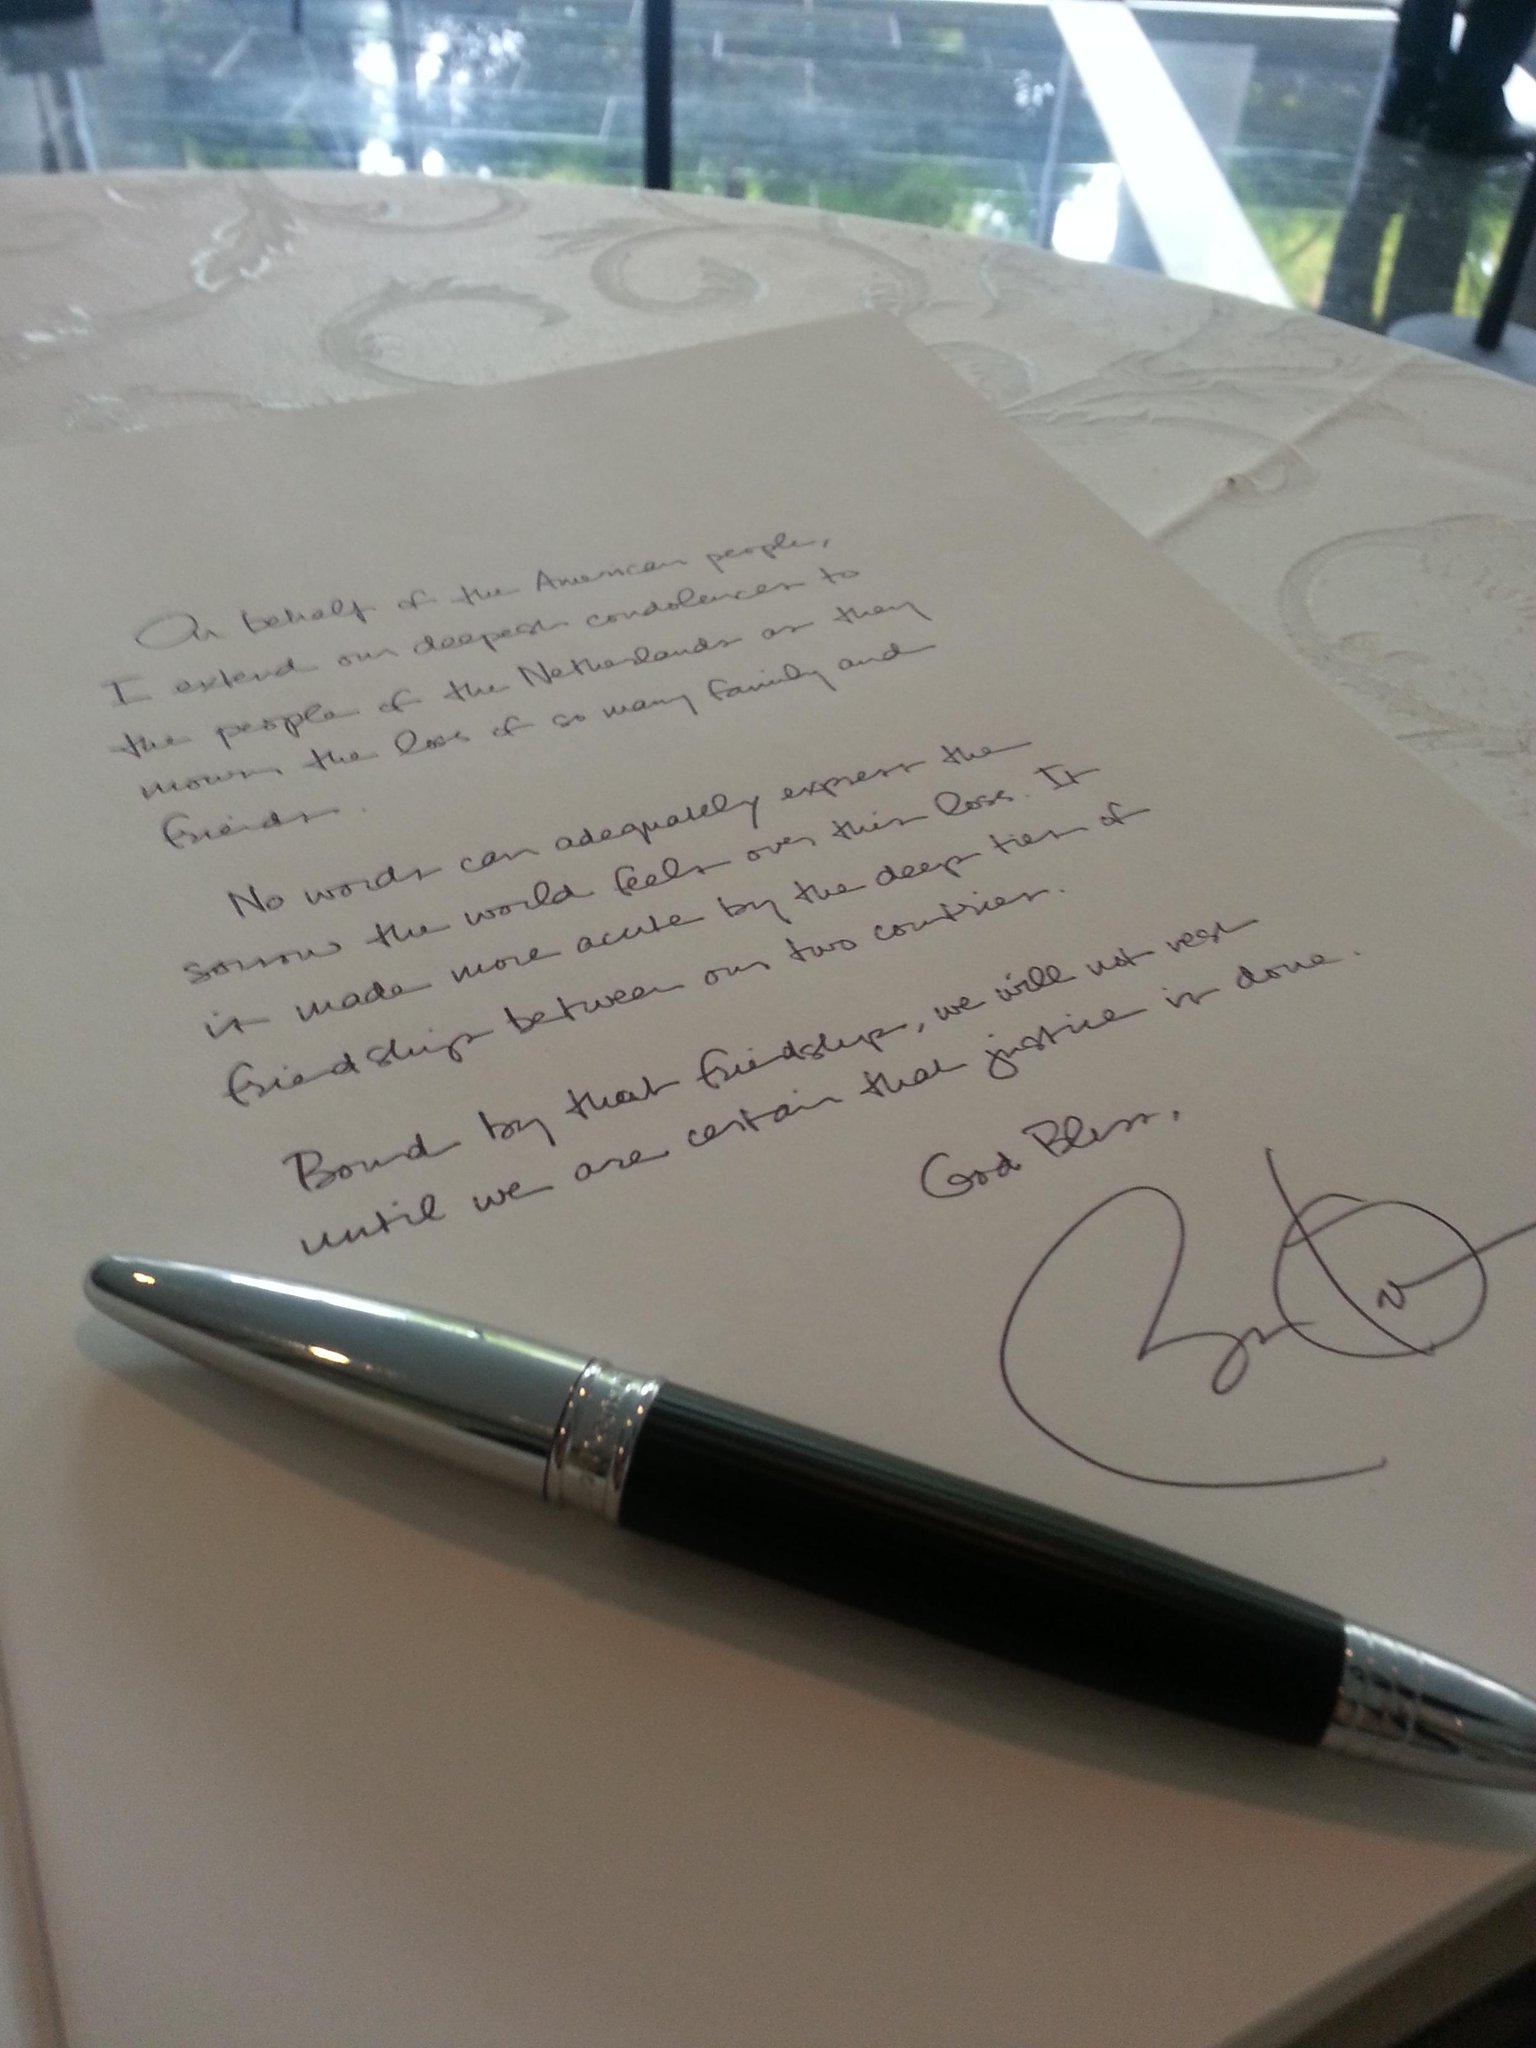 On behalf of the American people,
I extend our deepest condolences to
the people of the Netherlands as they
mourn the loss of so many family and
friends.
No words can adequately express the
sorrow the world feels over this loss. It
is made more acute by the deep ties of
friendship between our two countries.
Bound by that friendship, we will not rest
until we are certain that justice is done.
God Bless,